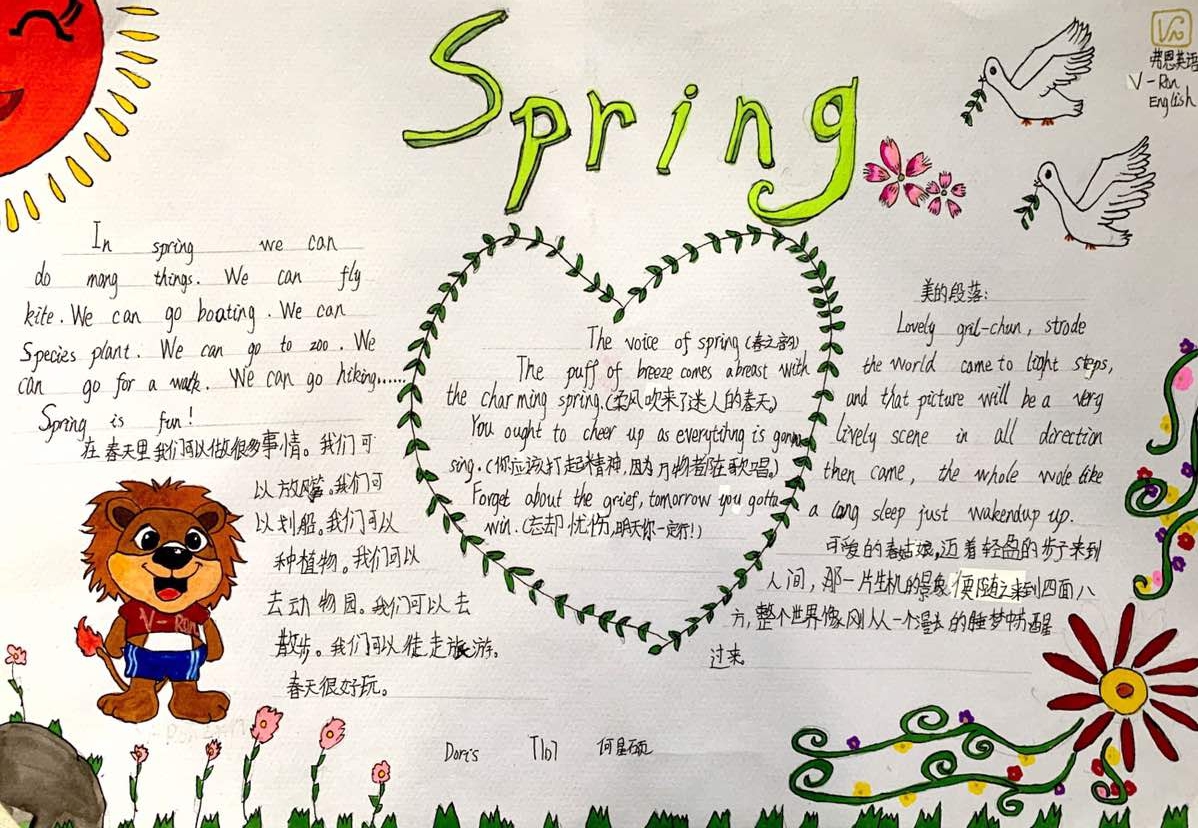 Spring
弗恩英语
V-Ron
English
In spring we can
do mang things. We can fly
kite. We can go boating. We can
Species plant. We can go to zoo. We
can go for a walk. We can go hiking......
Spring is fun!
在春天里我们可以做很多事情。我们可
以放风筝。我们可
以划船。我们可以
种植物。我们可以
去动物园。我们可以去
散步。我们可以徒走旅游。
春天很好玩。
V-Ron
The voice of spring (春之韵)
The puff of breeze comes abreast with
the charming spring.(柔风吹来了迷人的春天。)
You ought to cheer up as everytihng is gonna
sing.(你应该打起精神,因为万物都在歌唱。)
Forget about the grief, tomorrow you gotta
win.(忘却忧伤,明天你一定行!)
美的段落:
Lovely gril-chun, strode
the world came to light steps,
and that picture will be a very
lively scene in all direction
then came, the whole wole like
a long sleep just wakendup up.
可爱的春姑娘,迈着轻盈的步子来到
人间,那一片生机的景象便随之来到四面八
方,整个世界像刚从一个漫长的睡梦中苏醒
过来。
Doris T101 何星硕